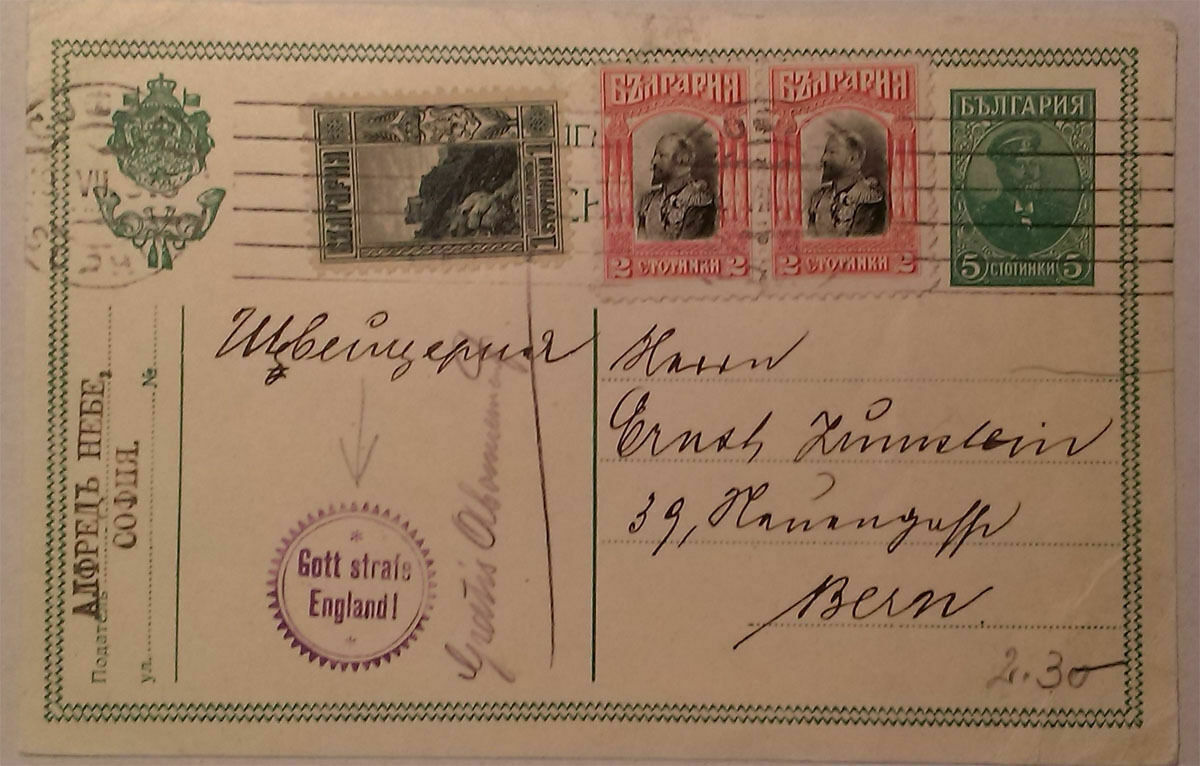 БЪЛГАРИЯ
1 СТОТИНКИ 1
БЪЛГАРИЯ
2 СТОТИНКИ 2
БЪЛГАРИЯ
2 СТОТИНКИ 2
БЪЛГАРИЯ
5 СТОТИНКИ 5
АЛФРЕДЪ НЕБЕ,
СОФИЯ.
Подател
ул. №.
Щвейцерия
Gott strafe
England!
Gratis
Herrn
Ernst Zumstein
39, Neuengasse
Bern
2.30